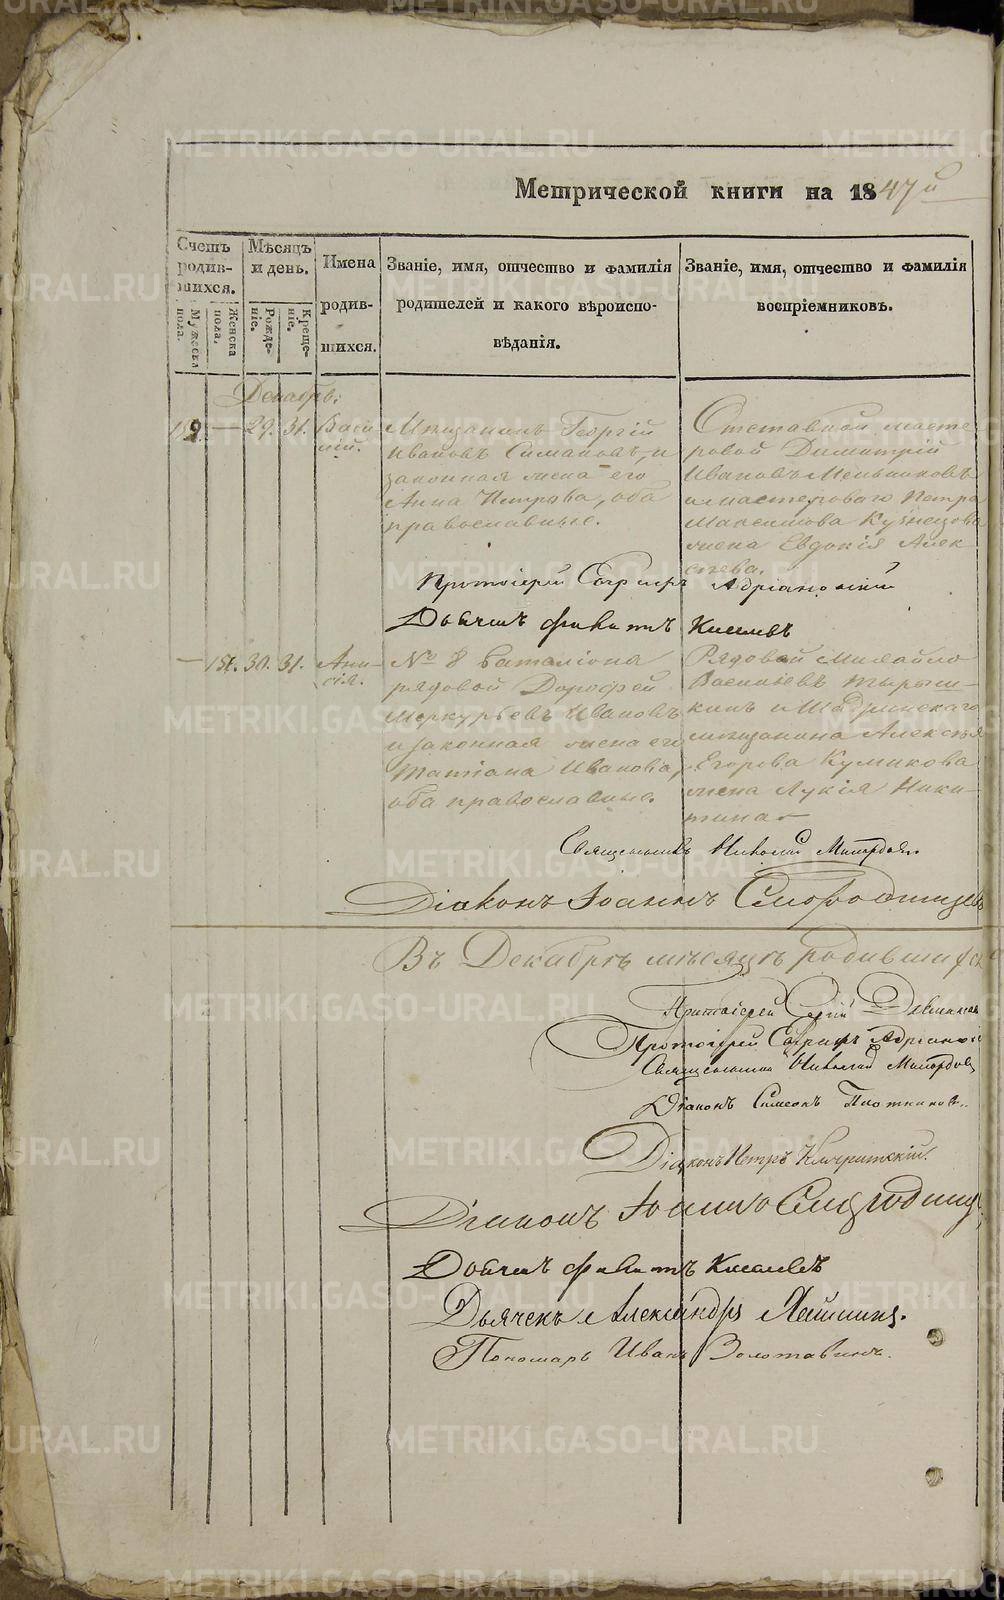 Метрической книги на 1847й
Счетъ родив-шихся.
Мужеска пола.
Женска пола.
Мѣсяцъ и день.
Рожде-ніе.
Креще-ніе.
Имена
родив-
шихся.
Званіе, имя, отчество и фамилія
родителей и какого вѣроиспо-
вѣданія.
Званіе, имя, отчество и фамилія
воспріемниковъ.
Декабрь.
— 29. 31. Васи-
лій.
Мѣщанинъ Георгій
Ивановъ Симановъ, и
законная жена его
Анна Петрова, оба
православные.
Отставной масте-
ровой Димитрій
Ивановъ Мельниковъ
и мастероваго Петра
Максимова Кузнецова
жена Евдокія Алек-
сѣева.
Протоіерей
Дьячекъ Киселевъ
— 30. 31. Ани-
сія.
№ 8 баталіона
рядовой Дорофей
Меркурьевъ Ивановъ
и законная жена его
Татіана Иванова,
оба православные.
Рядовой Михайло
Васильевъ
кинъ и Шадринскаго
мѣщанина Алексѣя
Егорова Куликова
жена Лукія Ники-
тина
Священникъ Николай
Діаконъ Іоаннъ Смородинцевъ
Въ Декабрѣ мѣсяцѣ родившихся
Протоіерей Сергій
Протоіерей
Священникъ Николай
Діаконъ Симеонъ Плотниковъ.
Діаконъ Петръ
Діаконъ Іоаннъ
Дьячекъ Киселевъ
Дьячекъ Александръ
Пономарь Иванъ Золотавинъ.
METRIKI.GASO-URAL.RU